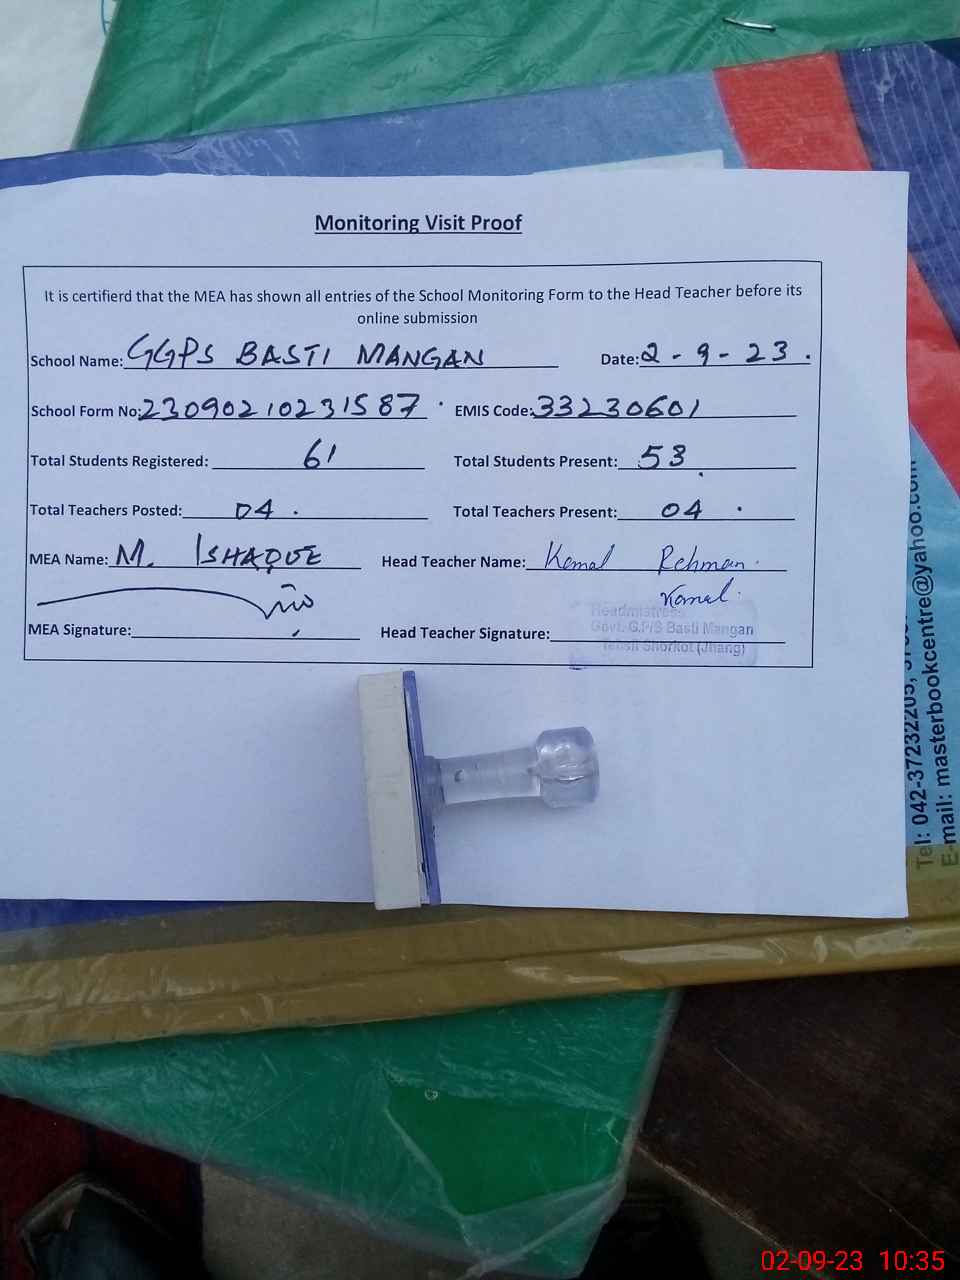 Monitoring Visit Proof
It is certifierd that the MEA has shown all entries of the School Monitoring Form to the Head Teacher before its
online submission
School Name: GGPS BASTI MANGAN Date: 2-9-23.
School Form No: 23090210231587 EMIS Code: 33230601
Total Students Registered: 61 Total Students Present: 53
Total Teachers Posted: 04. Total Teachers Present: 04.
MEA Name: M. ISHAQUE Head Teacher Name: Komal Rehman.
Komal.
MEA Signature: Head Teacher Signature:
Headmistress
Govt. G.P/S Basti Mangan
Tehsil Shorkot (Jhang)
Tel: 042-37232205,
E-mail: masterbookcentre@yahoo.com
02-09-23 10:35